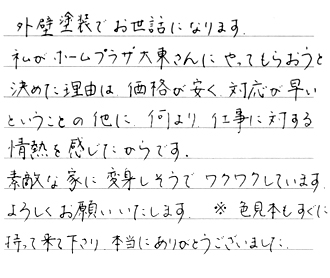 外壁塗装でお世話になります.
私がホームプラザ大東さんにやってもらおうと
決めた理由は 価格が安く. 対応が早い
ということの他に. 何より. 仕事に対する
情熱を感じたからです.
素敵な家に変身しそうで ワクワクしています
よろしくお願いいたします. ※ 色見本もすぐに
持って来て下さり. 本当にありがとうございました.